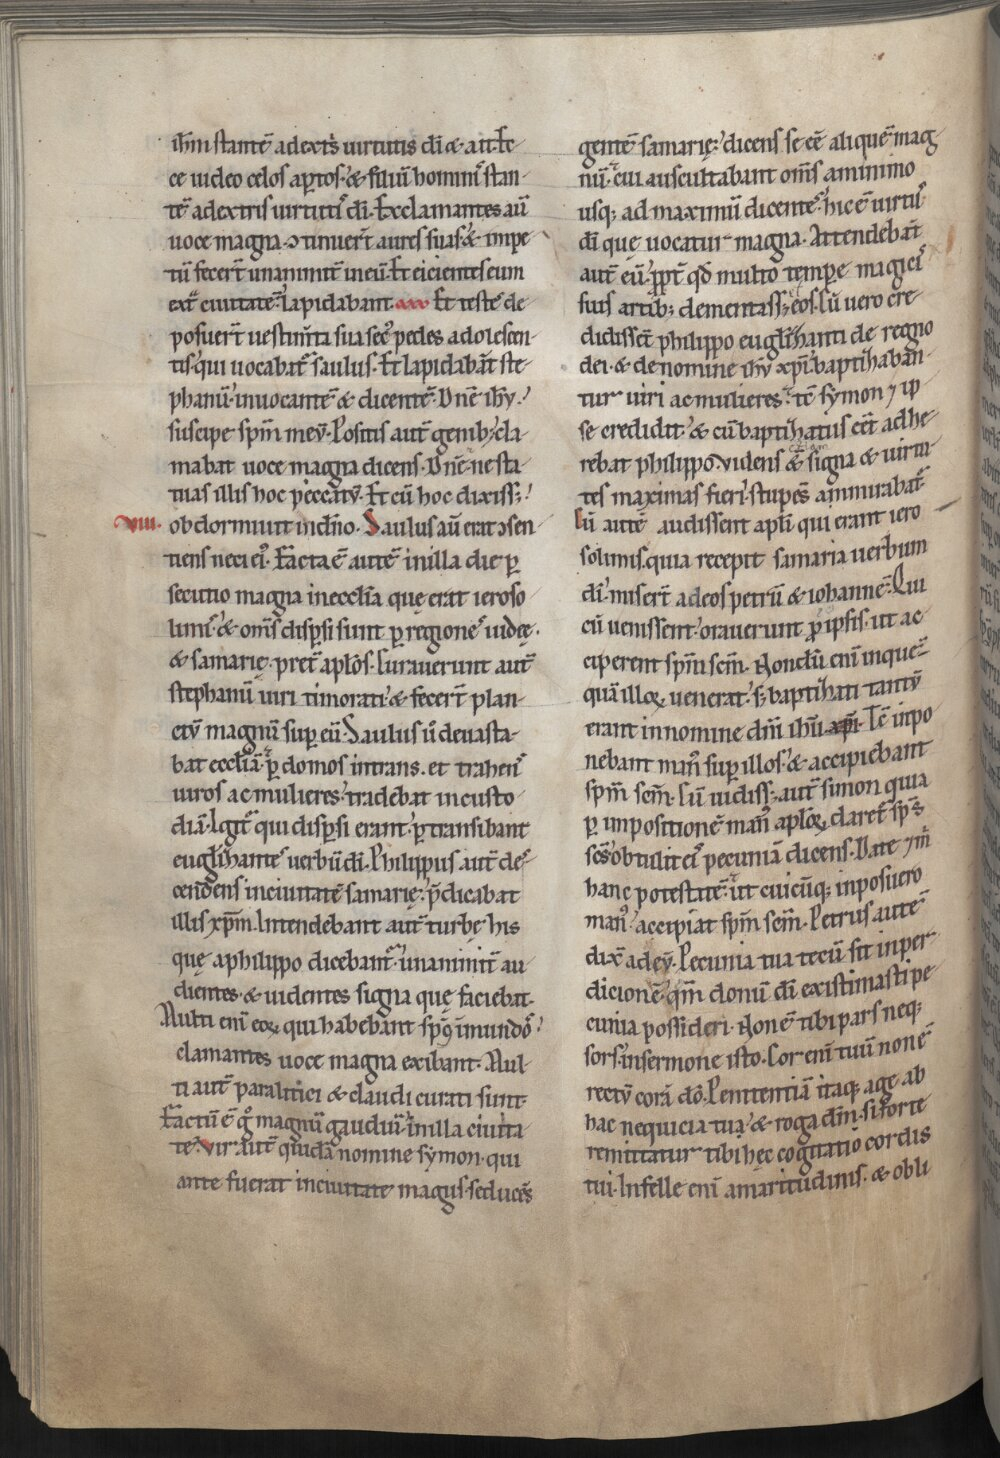 ih̅m stante̅ a dextr̕s uirtutis d̅i & ait. Ec
ce uideo celos ap̲tos. & filiu̅ homini᷒ stan-
te̅ a dextris uirtuti᷒ di̅. Exclamantes au̅
uoce magna. ↄtinuer̅t aures suas. & impe
tu̅ fecer̅t unanimit̅ in eu̅. Et eicientes eum
ext᷑ ciuitate̅. lapidabant. Et teste᷒ de-
posuer̅t uestim̅ta sua sec᷒ pedes adolescen-
tis. qui uocabat᷑ saulus. Et lapidaba̅t ste-
phanu̅. inuocante̅ & dicente̅. Dn̅e ih̅u.
suscipe sp̅m meu̅. Positis aut̅ genib; cla-
mabat uoce magna dicens. Dn̅e. ne sta-
tuas illis hoc peccatu̅. Et cu̅ hoc dixiss;.
viii. obdormiuit in dn̅o. Saulus au̅ erat ↄsen-
tiens neci ei᷒. Facta e̅ aute̅ in illa die p̲-
secutio magna in eccl̅ia que̜ erat ieroso-
limi᷒. & om̅s disp̲si sunt p̲ regione᷒ iudee̜.
& samarie̜. pret᷑ ap̅los. Curauerunt aut̅
stephanu̅ uiri timorati. & fecer̅t plan-
ctu̅ magnu̅ sup̲ eu̅. Saulus u̅ deuasta-
bat eccl̅ia̅. p̲ domos intrans. et trahen᷒
uiros ac mulieres. tradebat in custo-
dia̅. Igit᷑ qui disp̲si erant. p̲transibant
eugl̅izante᷒ uerbu̅ di̅. Philippus aut̅ de-
cendens in ciuitate̅ samarie̜. p̅dicabat
illis xp̅m. Intendebant aut̅ turbe̜ his
que̜ a philippo dicebant᷑. unanimit̅ au-
dientes. & uidentes signa que̜ faciebat.
Multi eni̅ eoꝝ qui habebant sp̅c i̅mundo᷒.
clamantes uoce magna exibant. Mul-
ti aut̅ paralitici & claudi curati sunt.
Factu̅ e̅ g᷒ magnu̅ gaudiu̅. in illa ciuita-
te. Vir aut̅ quida̅ nomine symon. qui
ante fuerat in ciuitate magus. seduce̅s
gente̅ samarie̜. dicens se ee̅ alique̅ mag-
nu̅. cui auscultabant om̅s a minimo
usq; ad maximu̅ dicente᷒. hic e̅ uirtu᷒
di̅ que̜ uocatur magna. Attendeba̅t
aut̅ eu̅. pp̲t᷑ qd̅ multo tempore magici᷒
suis artib; dementass; eos. Cu̅ uero cre-
didisse̅t philippo eugl̅izanti de regno
dei. & de nomine ih̅u xp̅i. baptizaban-
tur uiri ac mulieres. tc̅ symon ⁊ ip-
se credidit. & cu̅ baptizatus e̅et adhe-
rebat philippo. Videns & etiam signa & uirtu-
tes maximas fieri. stupe̅s ammirabat᷑
Cu̅ aute̅ audissent ap̅li qui erant iero
solimis. quia recepit samaria uerbum
di̅. miser̅t ad eos petru̅ & iohanne̅. Qui
cu̅ uenissent. orauerunt p̲ ipsis. ut ac-
ciperent sp̅m sc̅m. Nondu̅ eni̅ in que̅-
qua̅ illoꝝ uenerat. s; baptizati tantu̅
erant in nomine dn̅i ih̅u xp̅i. Tc̅ inpo-
nebant man᷒ sup̲ illos. & accipiebant
sp̅m sc̅m. Cu̅ uidiss; aut̅ simon quia
p̲ impositione̅ man᷒ ap̅loꝝ daret᷑ sp̅s
sc̅s. obtulit ei᷒ pecunia̅ dicens. Date ⁊ m̅
hanc potestate̅. ut cuicu̅q; inposuero
man᷒. accipiat sp̅m sc̅m. Petrus aute̅
dix̅ ad eu̅. Pecunia tua tecu̅ sit in per-
dicione̅. qm̅ donu̅ di̅ existimasti pe-
cunia possideri. Non e̅ tibi pars neq;
sors. in sermone isto. Cor eni̅ tuu̅ non e̅
rectu̅ cora̅ d̅o. Penitentia̅ itaq; age ab
hac nequicia tua. & roga dn̅m. si forte
remittatur tibi he̜c cogitatio cordis
tui. In felle eni̅ amaritudinis. & obli